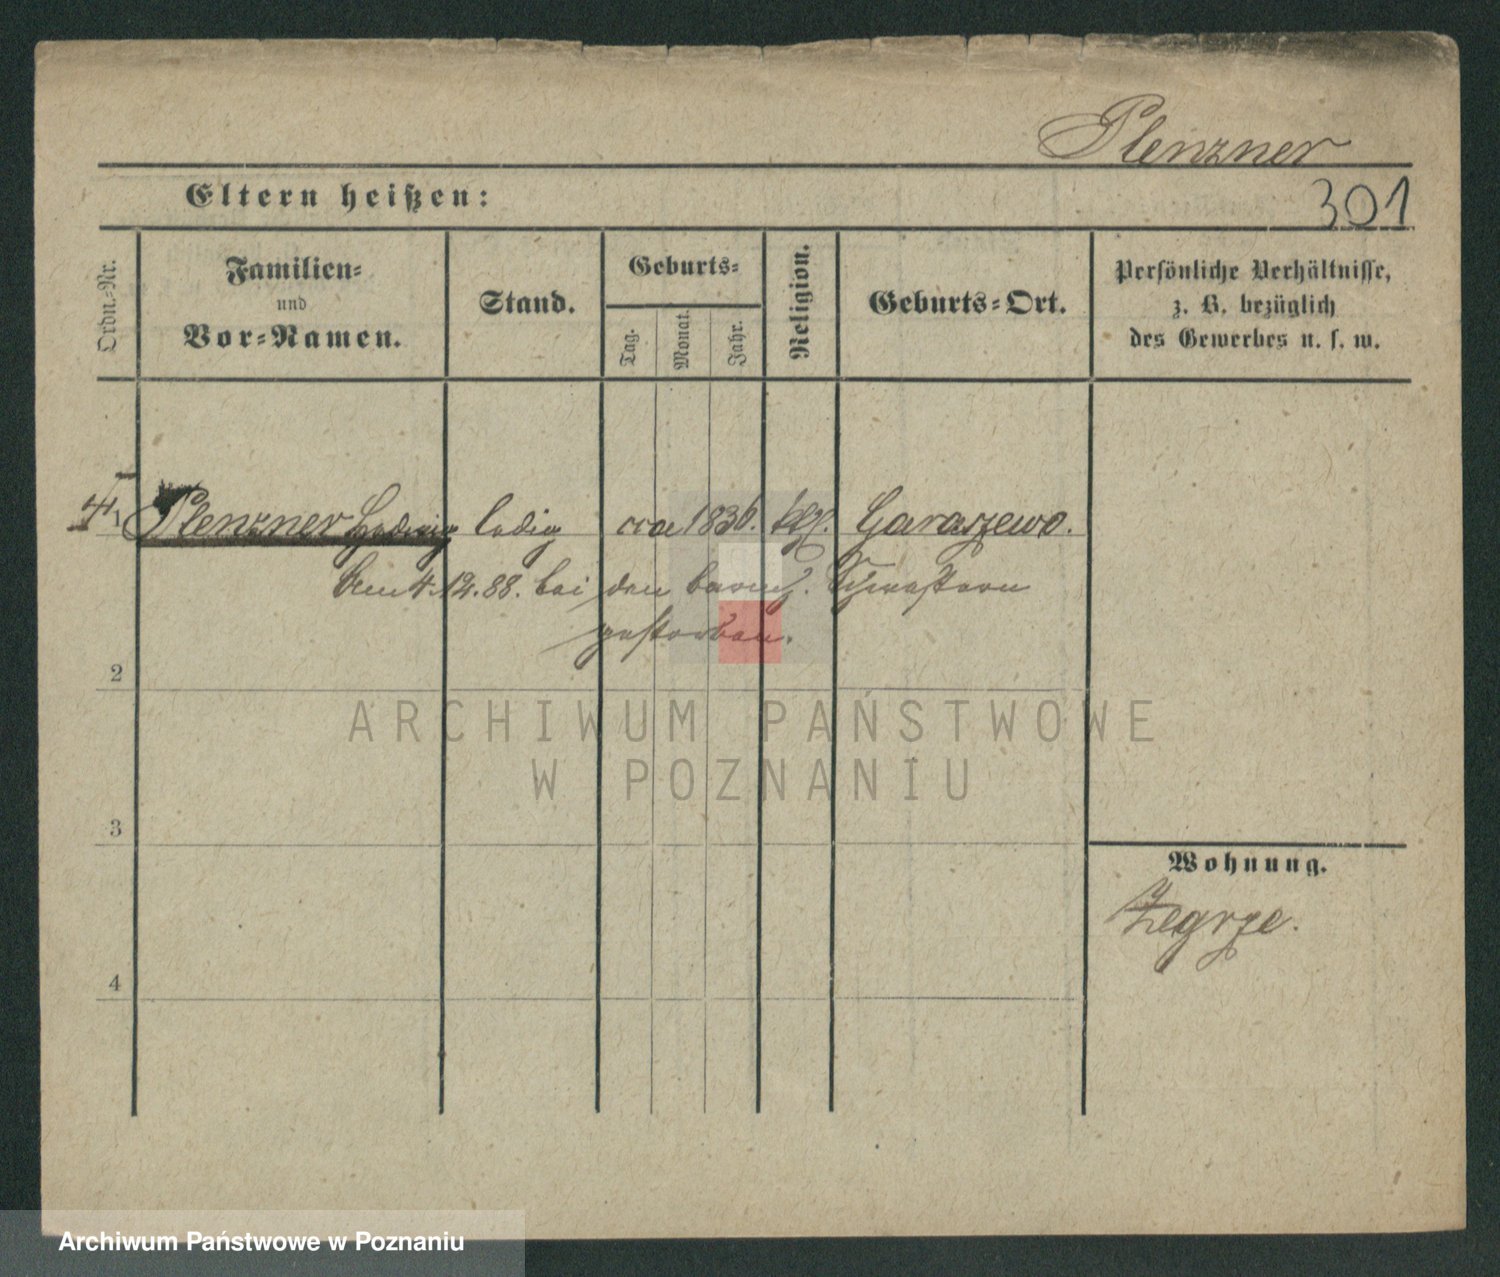 Plenzner
Eltern heißen:
301
Ordn.-Nr.
Familien-
und
Vor-Namen.
Stand.
Geburts-
Tag.
Monat.
Jahr.
Religion.
Geburts-Ort.
Persönliche Verhältnisse,
z. B. bezüglich
des Gewerbes u. s. w.
1 Plenzner Hedwig ledig cca 1836. kth. Garaszewo.
Am 4.12.88. bei den barmh. Schwestern
gestorben.
2
ARCHIWUM PAŃSTWOWE
W POZNANIU
3
Wohnung.
Zegrze.
4
Archiwum Państwowe w Poznaniu